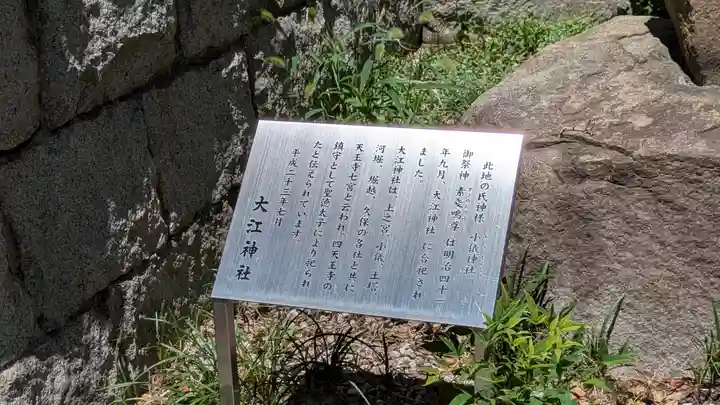 此地の氏神様、小儀神社
御祭神 素戔嗚尊 は明治四十一
年九月、大江神社 に合祀され
ました。
大江神社は、上之宮、小儀、土塔
河堀、堀越、久保の各社と共に
天王寺七宮と云われ、四天王寺の
鎮守として聖徳太子により祀られ
たと伝えられています。
平成二十三年七月
大江神社